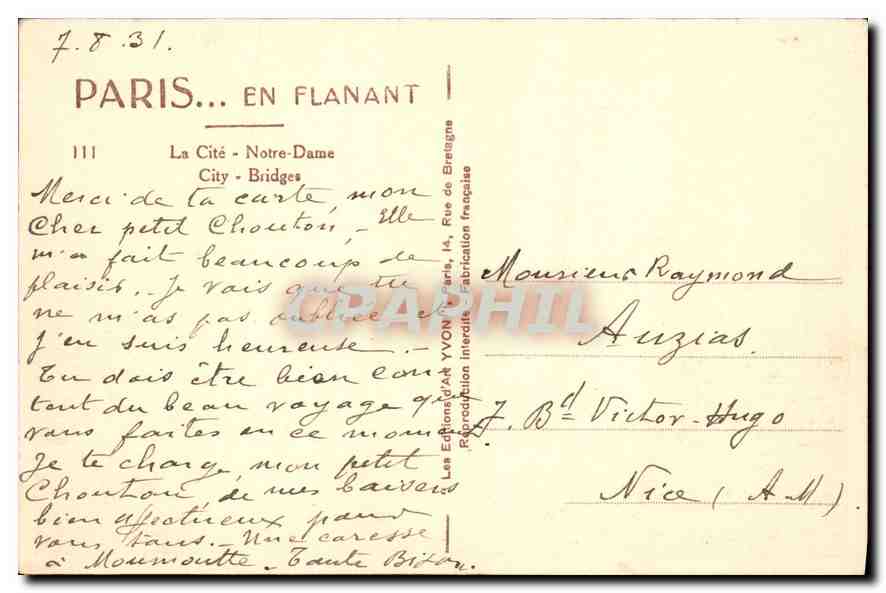 7.8.31.
PARIS... EN FLANANT
111 La Cité - Notre-Dame
City - Bridges
Merci de ta carte, mon
cher petit Chouton, - Elle
m'a fait beaucoup de
plaisir. - Je vois que tu
ne m'as pas oubliée et
j'en suis heureuse. -
Tu dois être bien con-
tent du beau voyage que
vous faites en ce moment.
Je te charge, mon petit
Chouton, de mes baisers
bien affectueux pour
vous tous. - Une caresse
à Moumoutte - Tante
Les Editions d'Art YVON Paris, 14, Rue de Bretagne
Reproduction Interdite Fabrication française
Monsieur Raymond
Auzias
7. Bd Victor-Hugo
Nice (A-M).
CPAPHIL